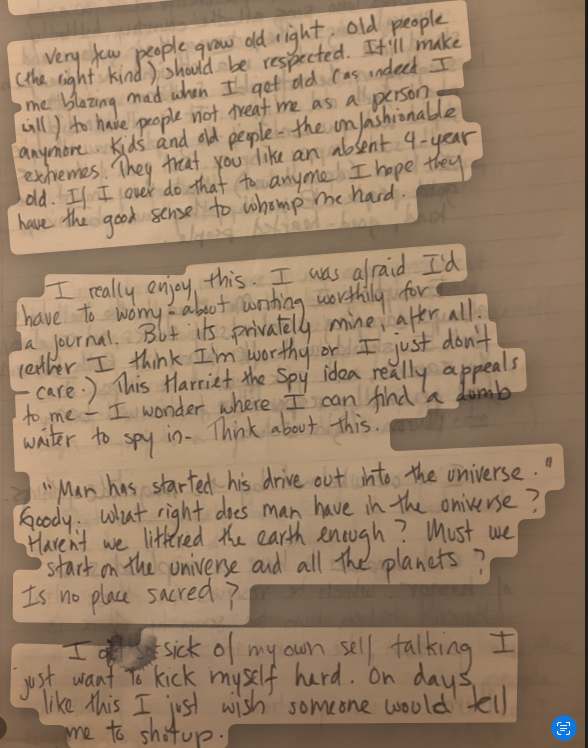 Very few people grow old right. Old people
(the right kind) should be respected. It'll make
me blazing mad when I get old (as indeed I
will) to have people not treat me as a person
anymore. Kids and old people - the unfashionable
extremes. They treat you like an absent 4-year
old. If I ever do that to anyone I hope they
have the good sense to whomp me hard.
I really enjoy this. I was afraid I'd
have to worry about writing worthily for
a journal. But its privately mine, after all.
(either I think I'm worthy or I just don't
care.) This Harriet the Spy idea really appeals
to me - I wonder where I can find a dumb
waiter to spy in - Think about this.
"Man has started his drive out into the universe."
Goody. What right does man have in the universe?
Haven't we littered the earth enough? Must we
start on the universe and all the planets?
Is no place sacred?
I sick of my own self talking I
just want to kick myself hard. On days
like this I just wish someone would tell
me to shutup.